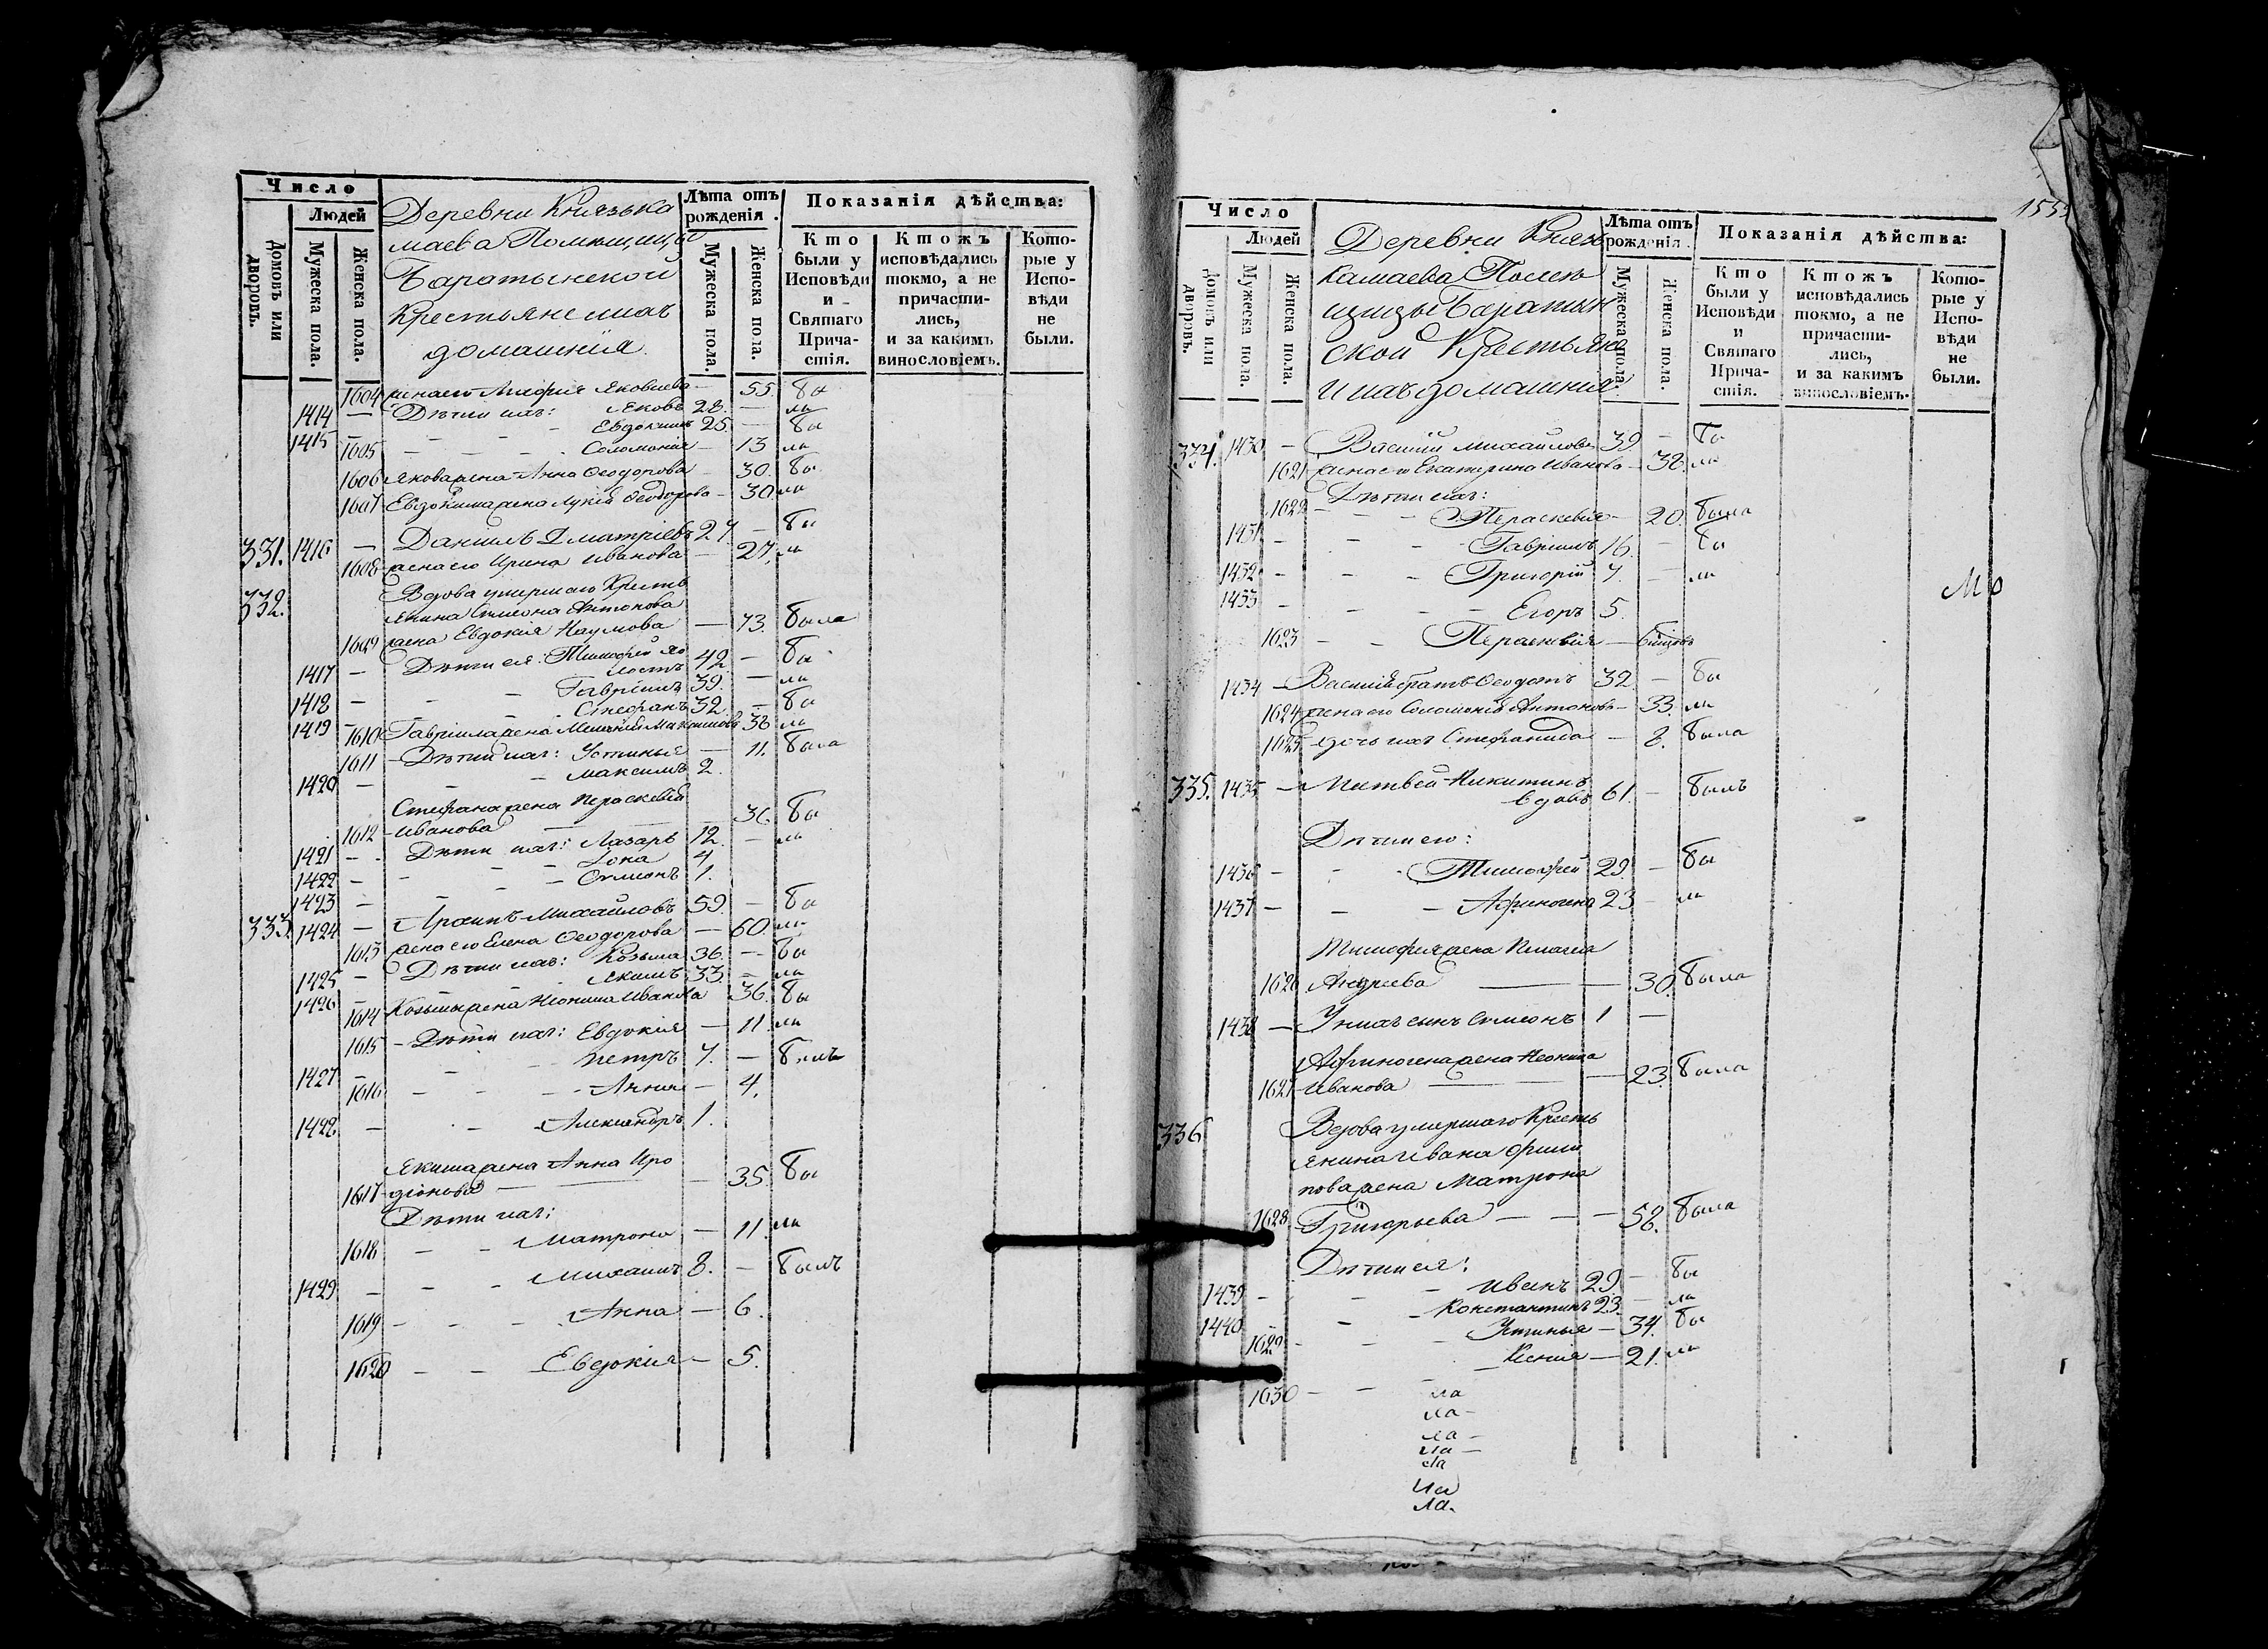 Число
Людей
Домовъ или дворовъ.
Мужеска пола.
Женска пола.
Деревни Князька
маева Помѣщицы
Баратынской
Крестьяне ихъ
домашнія
Лѣта отъ рожденія.
Мужеска пола.
Женска пола.
Показанія дѣйства:
Кто были у Исповѣди и Святаго Причастія.
Ктожъ исповѣдались токмо, а не причастились, и за какимъ винословіемъ.
Которые у Исповѣди не были.
1604 жена его Яковлева — 55. бы
1414 — Дѣти ихъ: Яковъ 28. — ли
1415 — Евдокимъ 25 — бы
1605 — Соломонія — 13 ли
1606 Якова жена Анна Ѳеодорова — 30. бы
1607 Евдокима жена Ѳеодорова — 30 ли
331. 1416 — Даніилъ Дмитріевъ 27 — бы
1608 жена его Ирина Иванова — 27, ли
332. Вдова умершаго Кресть
янина Симеона Антонова
1609 жена Евдокія Наумова — 73. была
1417 — Дѣти ея: Тимофей хо
лостъ 42 — бы
1418 — Гавріилъ 39. — ли
1419 — Стефанъ 32 — бы
1610 Гавріила жена Максимова 38 ли
1611 — Дѣти ихъ: Устинья — 11. была
1420 — Максимъ 2.
Стефана жена Параскевія
1612 Иванова — 36 бы
1421 — Дѣти ихъ: Лазарь 12. — ли
1422 — Іона 4
1423 — Симеонъ 1.
333. 1424 — Архипъ Михайловъ 59. — бы
1613 жена его Елена Ѳеодорова — 60. ли
1425 — Дѣти ихъ: Козьма 36. — бы
1426 — Якимъ 33. — ли
1614 Козьмы жена Неонила Иванова 36. бы
1615 — Дѣти ихъ: Евдокія — 11 ли
1427 — Петръ 7. — былъ
1616 — Анна — 4.
1428 — Александръ 1.
Якима жена Анна Иро
1617 діонова — 35. бы
Дѣти ихъ:
1618 — Матрона — 11. ли
1429 — Михаилъ 8. — былъ
1619 — Анна — 6.
1620 — Евдокія — 5.
1555
Число
Людей
Домовъ или дворовъ.
Мужеска пола.
Женска пола.
Деревни Князь
камаева Помѣ
щицы Баратын
ской Крестьяне
и ихъ домашнія.
Лѣта отъ рожденія.
Мужеска пола.
Женска пола.
Показанія дѣйства:
Кто были у Исповѣди и Святаго Причастія.
Ктожъ исповѣдались токмо, а не причастились, и за какимъ винословіемъ.
Которые у Исповѣди не были.
334. 1430 — Василій Михайловъ 39. — бы
1621 жена его Екатерина Иванова — 38. ли
Дѣти ихъ:
1622 — Параскевія — 20. была
1431 — Гавріилъ 16. — бы
1432 — Григорій 7. — ли
1433 — Егоръ 5.
1623 — Параскевія —
1434 — Василія братъ Ѳеодотъ 32. — бы
1624 жена его Соломонія Антонова — 33. ли
1625 дочь ихъ Стефанида — 8. была
335. 1435 — Матвѣй Никитинъ
вдовъ 61. — былъ
Дѣти его:
1436 — Тимофей 29. — бы
1437 — Афиногенъ 23 — ли
Тимофея жена Пелагея
1626 Андреева — 30. была
1438 — У нихъ сынъ Симеонъ 1 —
Афиногена жена Неонила
1627 Иванова — 23. была
336 Вдова умершаго Кресть
янина Ивана Фили
пова жена Матрона
1628. Григорьева — 58. была
Дѣти ея:
1439 — Иванъ 29. — бы
1440 — Константинъ 23. — ли
1629 — Устинья — 34. бы
1630 — Ксенія — 21. ли